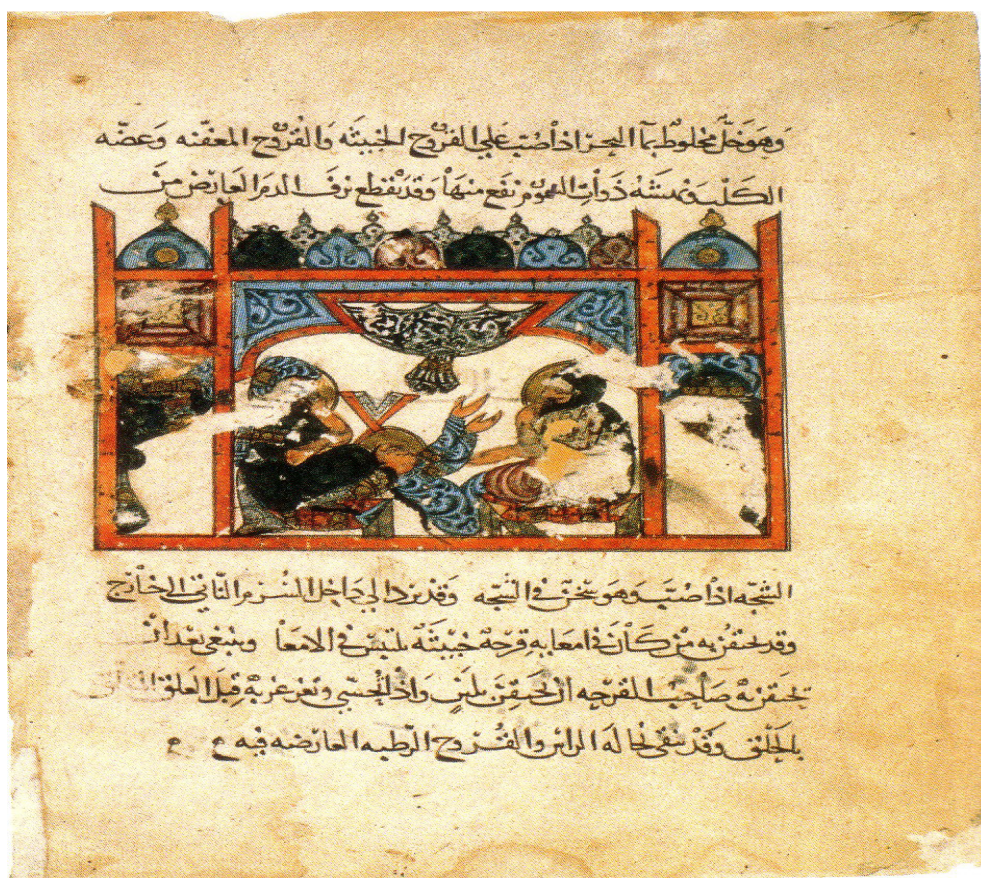 وهو خل مخلوط بما البحر اذا صب علي القروح الخبيثه والقروح المعفنه وعضه
الكلب ونهشه ذوات السموم نفع منها وقد تقطع نزف الدم العارض من
الشجه اذا صب وهو سخن في الشجه وقد يرد الي داخل السرم الناتي الي خارج
وقد يحتقن به من كان في امعايه قرحه خبيثه في الامعا وينبغي بعد ان
يحتقن به صاحب القرحه ان يحتقن بلبن واذا تحسي وتغرغر به قتل العلق
بالحلق وقد ينقي نخاله الراس والقروح الرطبه العارضه فيه